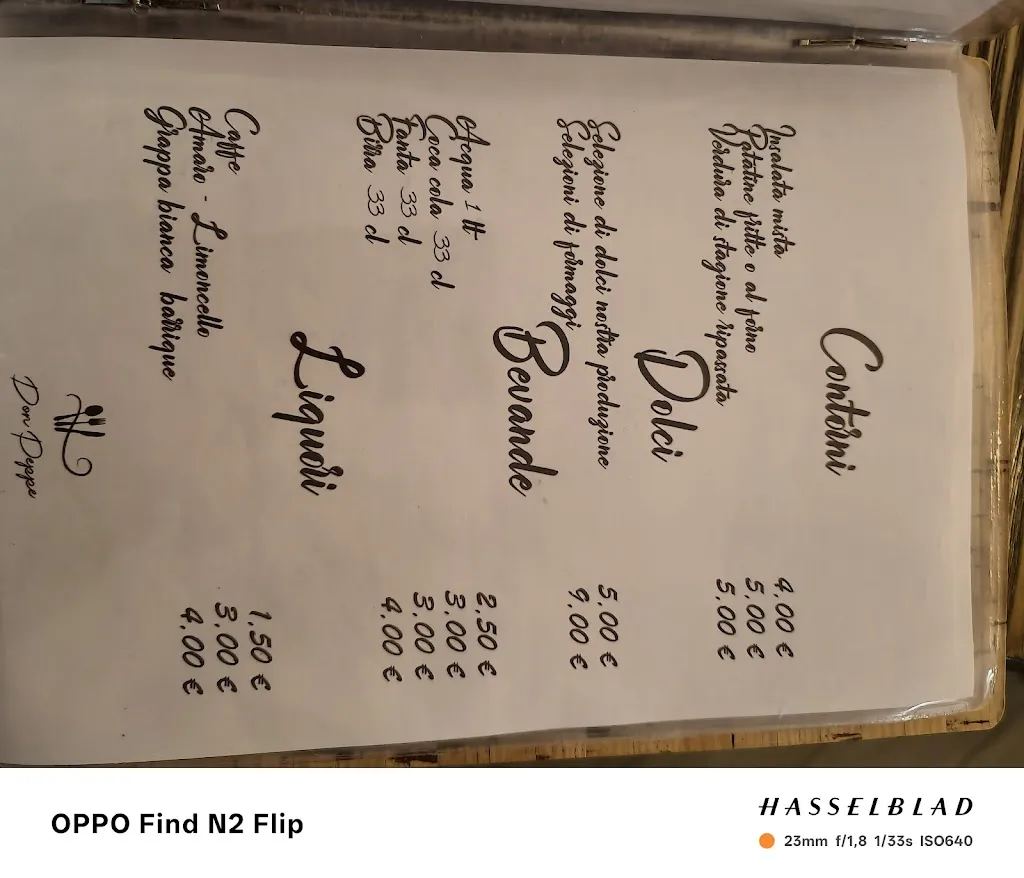 Contorni
Insalata mista 4,00 €
Patatine fritte o al forno 5,00 €
Verdura di stagione ripassata 5,00 €
Dolci
Selezione di dolci nostra produzione 5,00 €
Selezioni di formaggi 9,00 €
Bevande
Acqua 1 lt 2,50 €
Coca cola 33 cl 3,00 €
Fanta 33 cl 3,00 €
Birra 33 cl 4,00 €
Liquori
Caffe 1,50 €
Amaro - Limoncello 3,00 €
Grappa bianca barrique 4,00 €
Don Peppe
OPPO Find N2 Flip
HASSELBLAD
23mm f/1,8 1/33s ISO640